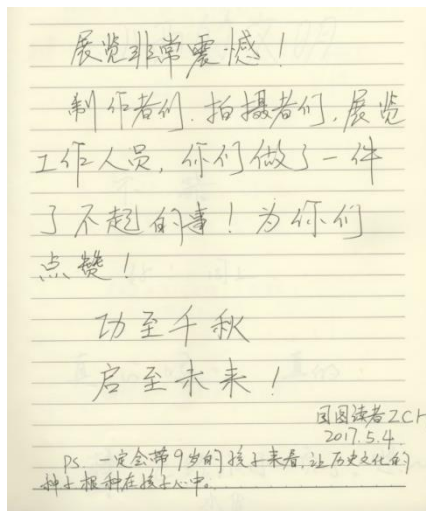 展览非常震憾！
制作者们、拍摄者们、展览
工作人员，你们做了一件
了不起的事！为你们
点赞！
功至千秋
启至未来！
国图读者ZCr
2017.5.4.
PS 一定会带9岁的孩子来看，让历史文化的
种子根种在孩子心中。